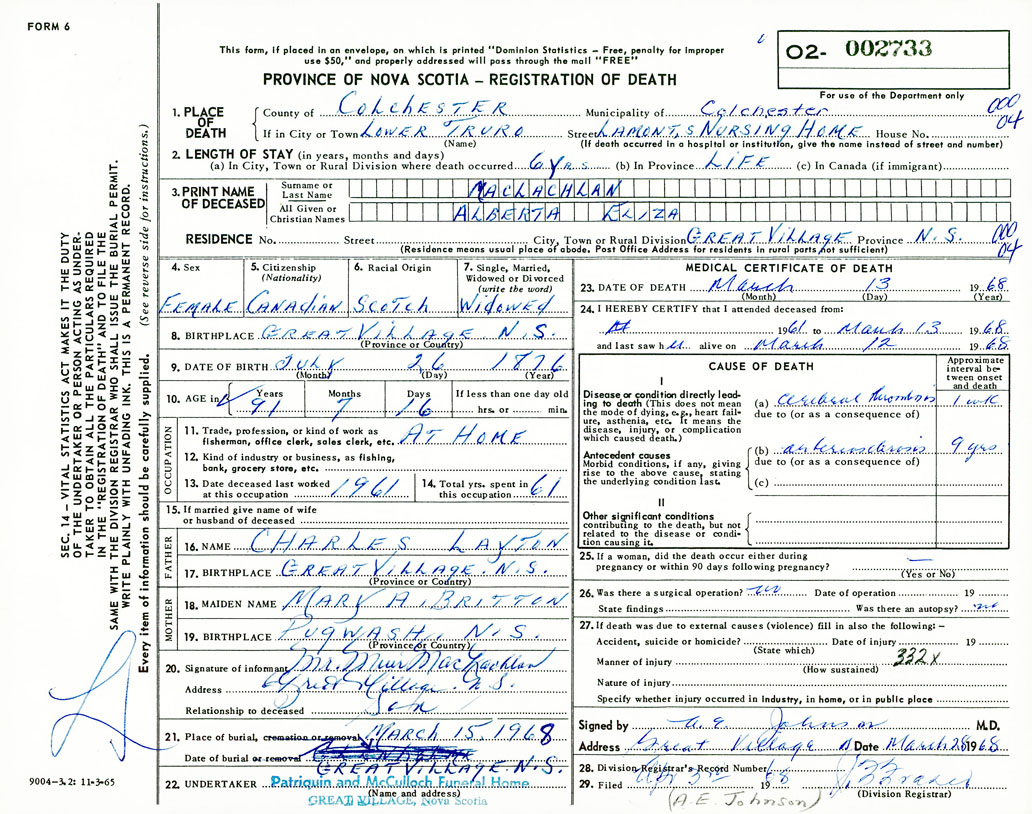 FORM 6
This form, if placed in an envelope, on which is printed "Dominion Statistics – Free, penalty for improper
use $50," and properly addressed will pass through the mail "FREE"
O2- 002733
For use of the Department only
PROVINCE OF NOVA SCOTIA – REGISTRATION OF DEATH
000
04
1. PLACE OF DEATH County of COLCHESTER Municipality of Colchester
If in City or Town LOWER TRURO Street LAMONT,S NURSING HOME House No.
(Name) (If death occurred in a hospital or institution, give the name instead of street and number)
2. LENGTH OF STAY (in years, months and days)
(a) In City, Town or Rural Division where death occurred 6 yrs. (b) In Province LIFE (c) In Canada (if immigrant)
3. PRINT NAME OF DECEASED
Surname or Last Name MACLACHLAN
All Given or Christian Names ALBERTA ELIZA
RESIDENCE No. Street City, Town or Rural Division GREAT VILLAGE Province N.S. 000 04
(Residence means usual place of abode. Post Office Address for residents in rural parts, not sufficient)
4. Sex 5. Citizenship (Nationality) 6. Racial Origin 7. Single, Married, Widowed or Divorced (write the word)
FEMALE CANADIAN SCOTCH WIDOWED
8. BIRTHPLACE GREAT VILLAGE N.S.
(Province or Country)
9. DATE OF BIRTH JULY 26 1876
(Month) (Day) (Year)
10. AGE in Years Months Days If less than one day old
91 7 16 hrs. or min.
OCCUPATION
11. Trade, profession, or kind of work as fisherman, office clerk, sales clerk, etc. AT HOME
12. Kind of industry or business, as fishing, bank, grocery store, etc.
13. Date deceased last worked at this occupation 1961 14. Total yrs. spent in this occupation 61
15. If married give name of wife or husband of deceased
FATHER
16. NAME CHARLES LAYTON
17. BIRTHPLACE GREAT VILLAGE. N.S.
(Province or Country)
MOTHER
18. MAIDEN NAME MARY A. BRITTON
19. BIRTHPLACE PUGWASH, N.S.
(Province or Country)
20. Signature of informant Mr. Muir MacLachlan
Address Great Village. N.S.
Relationship to deceased Son
21. Place of burial, cremation or removal MARCH 15, 1968
Date of burial or removal GREAT VILLAGE N.S.
22. UNDERTAKER Patriquin and McCulloch Funeral Home
(Name and address)
GREAT VILLAGE, Nova Scotia
MEDICAL CERTIFICATE OF DEATH
23. DATE OF DEATH March 13 1968
(Month) (Day) (Year)
24. I HEREBY CERTIFY that I attended deceased from:
1961 to March 13 1968
and last saw her alive on March 12 1968
CAUSE OF DEATH
Approximate interval between onset and death
I
Disease or condition directly leading to death (This does not mean the mode of dying, e.g., heart failure, asthenia, etc. It means the disease, injury, or complication which caused death.)
(a) cerebral thrombosis 1 wk
due to (or as a consequence of)
Antecedent causes
Morbid conditions, if any, giving rise to the above cause, stating the underlying condition last.
(b) arteriosclerosis 9 yrs
due to (or as a consequence of)
(c)
II
Other significant conditions contributing to the death, but not related to the disease or condition causing it.
25. If a woman, did the death occur either during pregnancy or within 90 days following pregnancy? —
(Yes or No)
26. Was there a surgical operation? no Date of operation 19
State findings Was there an autopsy? no
27. If death was due to external causes (violence) fill in also the following: –
Accident, suicide or homicide? Date of injury 19
(State which)
Manner of injury 332X
(How sustained)
Nature of injury
Specify whether injury occurred in Industry, in home, or in public place
Signed by A. E. Johnson M.D.
Address Great Village Date March 28 1968
28. Division Registrar's Record Number
29. Filed Apr 3rd 1968
(A.E. Johnson) (Division Registrar)
SEC. 14 – VITAL STATISTICS ACT MAKES IT THE DUTY
OF THE UNDERTAKER OR PERSON ACTING AS UNDER-
TAKER TO OBTAIN ALL THE PARTICULARS REQUIRED
IN THE "REGISTRATION OF DEATH" AND TO FILE THE
SAME WITH THE DIVISION REGISTRAR WHO SHALL ISSUE THE BURIAL PERMIT.
WRITE PLAINLY WITH UNFADING INK. THIS IS A PERMANENT RECORD.
Every item of information should be carefully supplied. (See reverse side for instructions.)
9004-3.2: 11-3-65